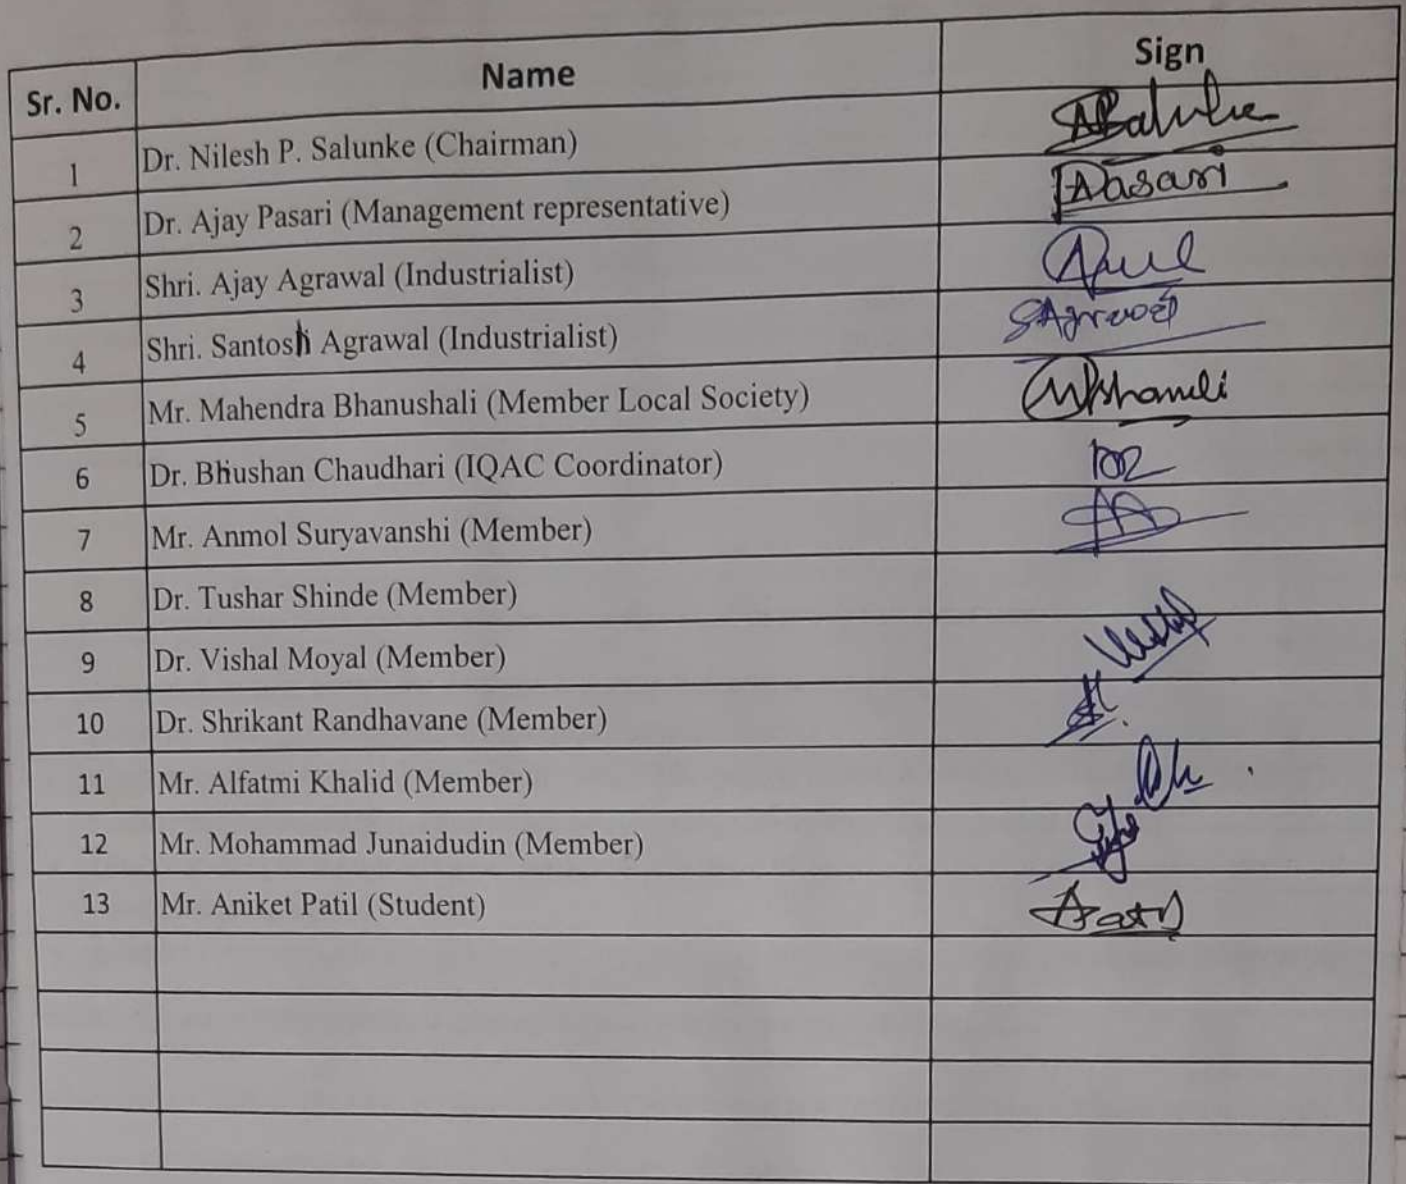 Sr. No. Name Sign
1 Dr. Nilesh P. Salunke (Chairman) NSalunke
2 Dr. Ajay Pasari (Management representative) APasari
3 Shri. Ajay Agrawal (Industrialist)
4 Shri. Santosh Agrawal (Industrialist) SAgrawal
5 Mr. Mahendra Bhanushali (Member Local Society)
6 Dr. Bhushan Chaudhari (IQAC Coordinator)
7 Mr. Anmol Suryavanshi (Member)
8 Dr. Tushar Shinde (Member)
9 Dr. Vishal Moyal (Member)
10 Dr. Shrikant Randhavane (Member)
11 Mr. Alfatmi Khalid (Member)
12 Mr. Mohammad Junaidudin (Member)
13 Mr. Aniket Patil (Student)